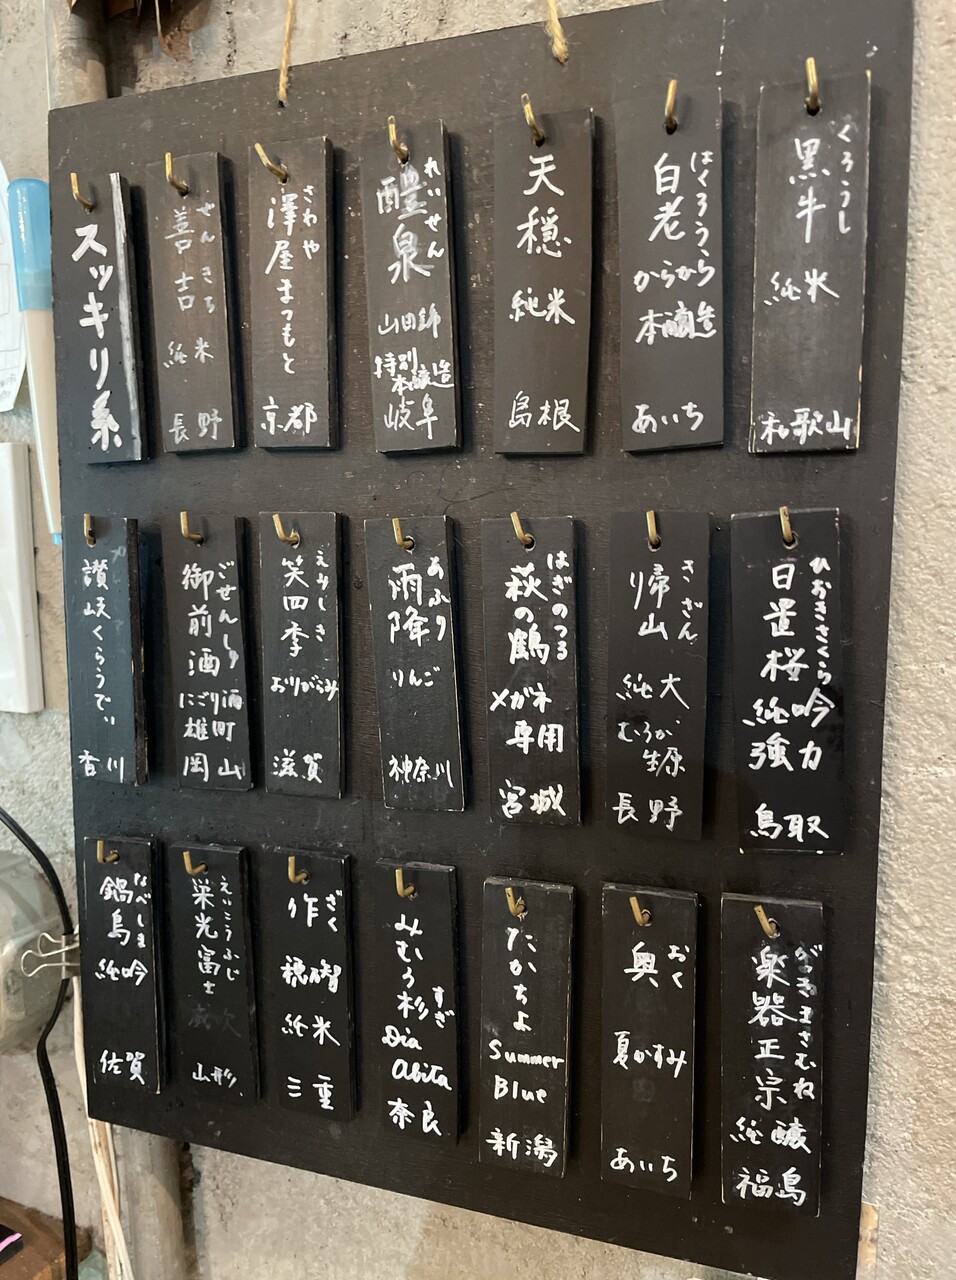 くろうし
黒牛
純米
和歌山
はくろう
白老
からから
本醸造
あいち
天穏
純米
島根
れいせん
醴泉
山田錦
特別
本醸造
岐阜
さわや
澤屋まつもと
京都
ぜんきち
善吉
純米
長野
スッキリ系
ひおきさくら
日置桜
純吟
強力
鳥取
さざん
帰山
純大
むろか
生原
長野
はぎのつる
萩の鶴
メガネ
専用
宮城
あふり
雨降
りんご
神奈川
えみしき
笑四季
おりがらみ
滋賀
ごぜんしゅ
御前酒
にごり酒
雄町
岡山
讃岐くらうでぃ
香川
がっきまさむね
楽器正宗
純醸
福島
おく
奥
夏がすみ
あいち
たかちよ
Summer
Blue
新潟
みむろ杉
すぎ
Dio
Abita
奈良
ざく
作
穂乃智
純米
三重
えいこうふじ
栄光冨士
山形
なべしま
鍋島
純吟
佐賀